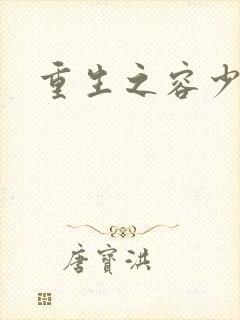 重生之容少
唐寶洪